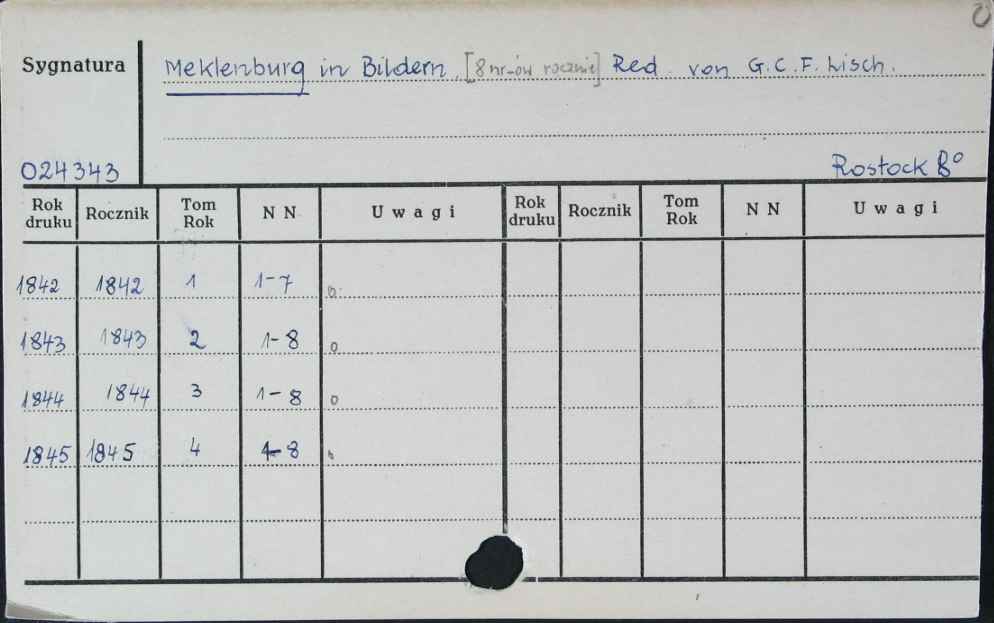 Sygnatura Meklenburg in Bildern. [8 nr-ów rocznie] Red. von G.C.F. Lisch.
024343 Rostock 8°
Rok druku Rocznik Tom Rok N N Uwagi Rok druku Rocznik Tom Rok N N Uwagi
1842 1842 1 1-7 o
1843 1843 2 1-8 o
1844 1844 3 1-8 o
1845 1845 4 1-8